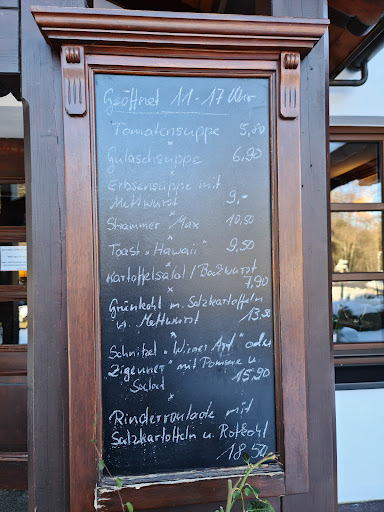 Geöffnet 11-17 Uhr
Tomatensuppe 5,80
Gulaschsuppe 6,90
Erbsensuppe mit
Mettwurst 9,-
Strammer Max 10,50
Toast "Hawaii" 9,50
Kartoffelsalat / Bockwurst
7,90
Grünkohl m. Salzkartoffeln
u. Mettwurst
Schnitzel "Wiener Art" oder
Zigeuner mit Pommes u.
Salad 15,90
Rinderroulade mit
Salzkartoffeln u Rotkohl
18,50